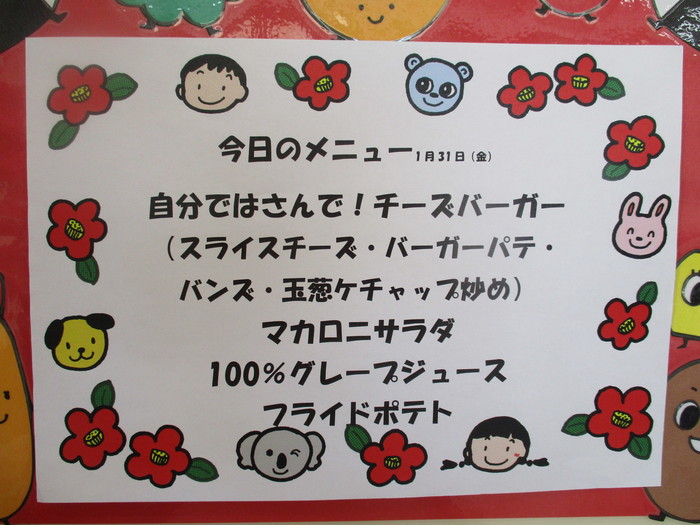 今日のメニュー1月31日（金）
自分ではさんで！チーズバーガー
（スライスチーズ・バーガーパテ・
バンズ・玉葱ケチャップ炒め）
マカロニサラダ
100％グレープジュース
フライドポテト